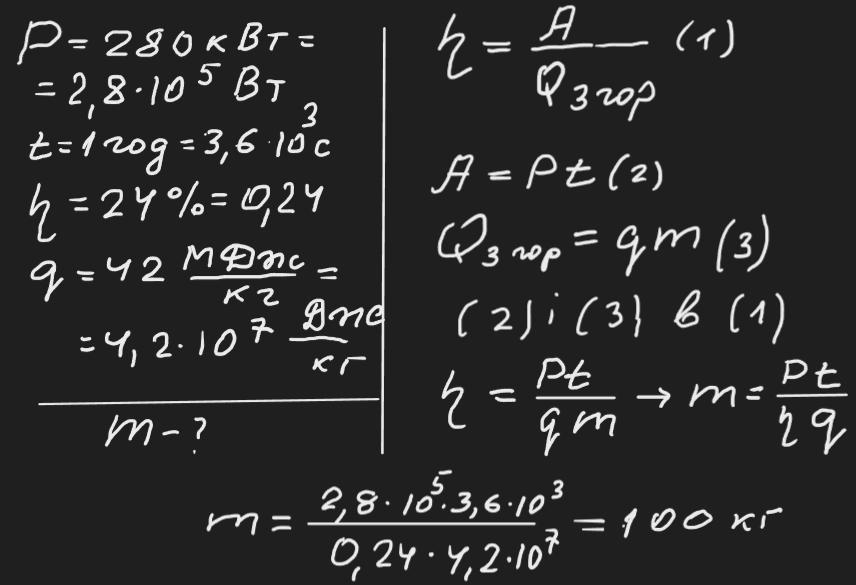 P = 280 кВт =
= 2,8·10⁵ Вт
t = 1 год = 3,6·10³ с
η = 24% = 0,24
q = 42 МДж/кг =
= 4,2·10⁷ Дж/кг
m - ?
η = A/Qзгор (1)
A = Pt (2)
Qзгор = qm (3)
(2) і (3) в (1)
η = Pt/qm → m = Pt/ηq
m = 2,8·10⁵·3,6·10³/0,24·4,2·10⁷ = 100 кг